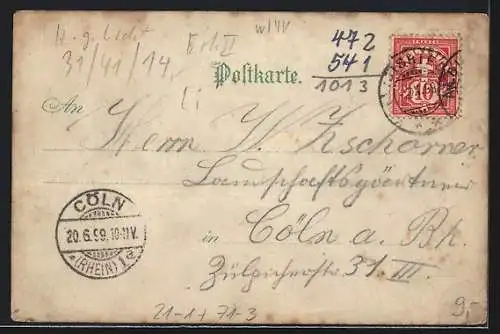 w/VV
31/41/14,
472
541
1013
Postkarte.
10
An
Herrn W. Zschorner
Landschaftsgärtner
in Cöln a. Rh.
Zülpicherstr 31 III.
CÖLN
20.6.99. 10-11V.
*(RHEIN)1a
21-17 71-3
9,-